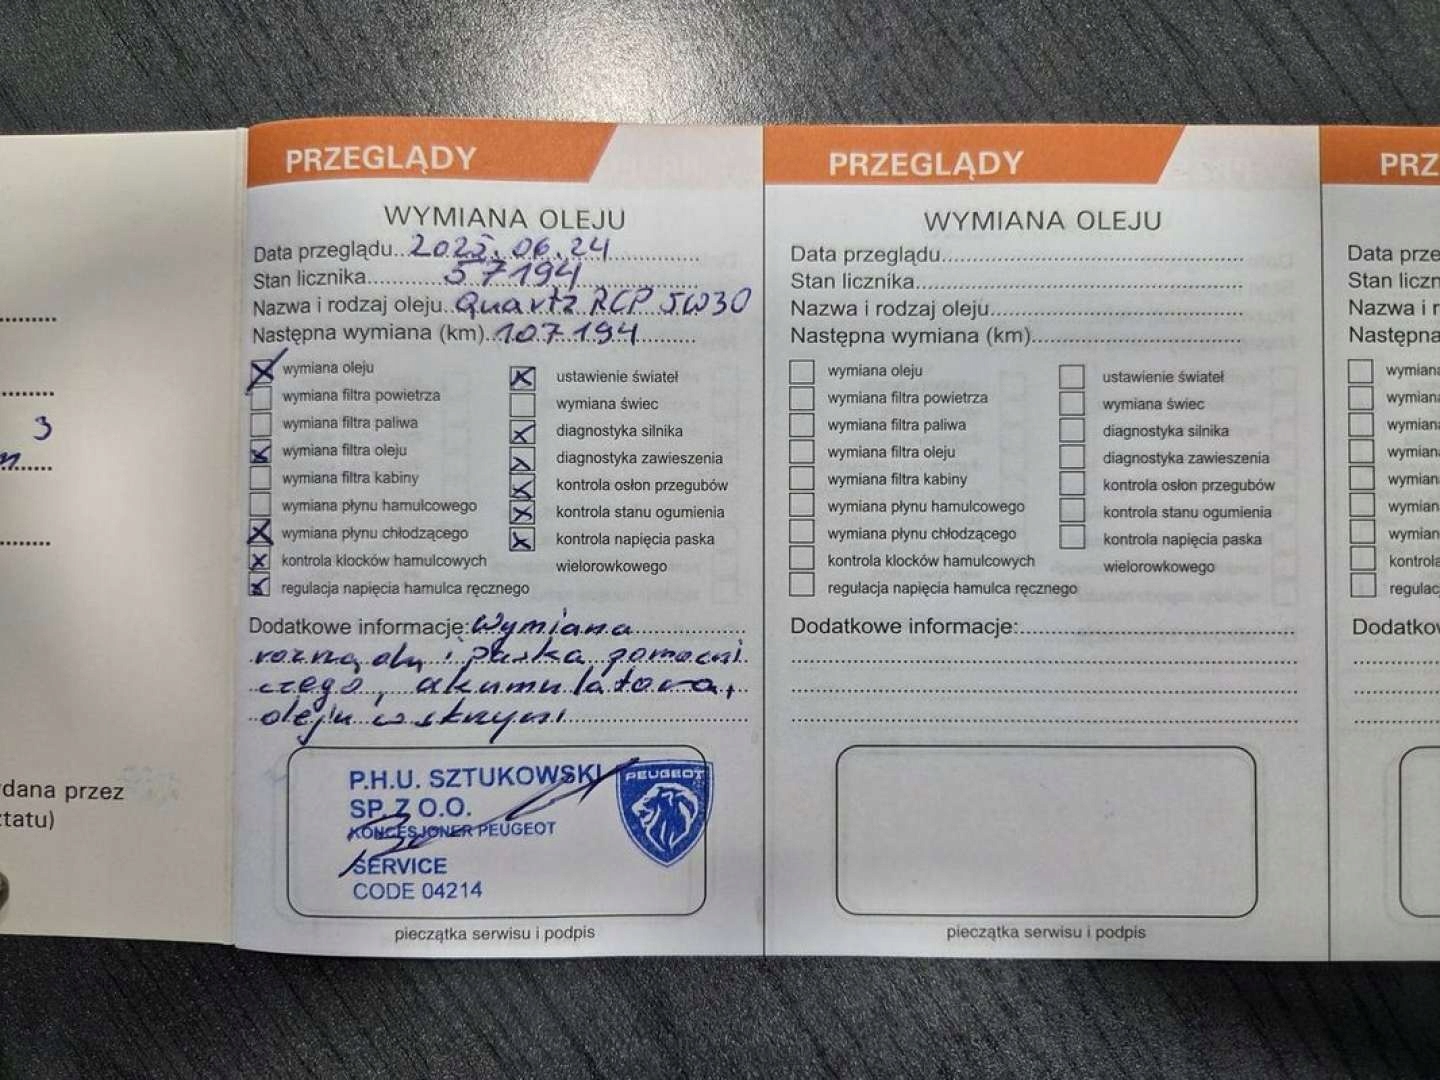 3
dana przez
ztatu)
PRZEGLĄDY
WYMIANA OLEJU
Data przeglądu 2025.06.24
Stan licznika 57194
Nazwa i rodzaj oleju Quartz RCP 5W30
Następna wymiana (km) 107194
wymiana oleju
wymiana filtra powietrza
wymiana filtra paliwa
wymiana filtra oleju
wymiana filtra kabiny
wymiana płynu hamulcowego
wymiana płynu chłodzącego
kontrola klocków hamulcowych
regulacja napięcia hamulca ręcznego
ustawienie świateł
wymiana świec
diagnostyka silnika
diagnostyka zawieszenia
kontrola osłon przegubów
kontrola stanu ogumienia
kontrola napięcia paska
wielorowkowego
Dodatkowe informacje: Wymiana
rozrządu i paska pomocni
czego, akumulatora,
oleju w skrzyni
P.H.U. SZTUKOWSKI
SP. Z O.O.
KONCESJONER PEUGEOT
SERVICE
CODE 04214
PEUGEOT
pieczątka serwisu i podpis
PRZEGLĄDY
WYMIANA OLEJU
Data przeglądu
Stan licznika
Nazwa i rodzaj oleju
Następna wymiana (km)
wymiana oleju
wymiana filtra powietrza
wymiana filtra paliwa
wymiana filtra oleju
wymiana filtra kabiny
wymiana płynu hamulcowego
wymiana płynu chłodzącego
kontrola klocków hamulcowych
regulacja napięcia hamulca ręcznego
ustawienie świateł
wymiana świec
diagnostyka silnika
diagnostyka zawieszenia
kontrola osłon przegubów
kontrola stanu ogumienia
kontrola napięcia paska
wielorowkowego
Dodatkowe informacje:
pieczątka serwisu i podpis
PRZ
Data prze
Stan liczn
Nazwa i r
Następna
wymiana
wymiana
wymiana
wymiana
wymiana
wymiana
wymian
kontrola
regulac
Dodatko